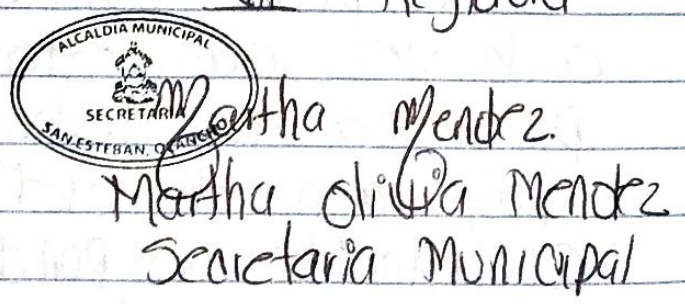 ALCALDIA MUNICIPAL
SECRETARIA
SAN ESTEBAN, OLANCHO
Martha Mendez.
Martha Olivia Mendez
Secretaria Municipal